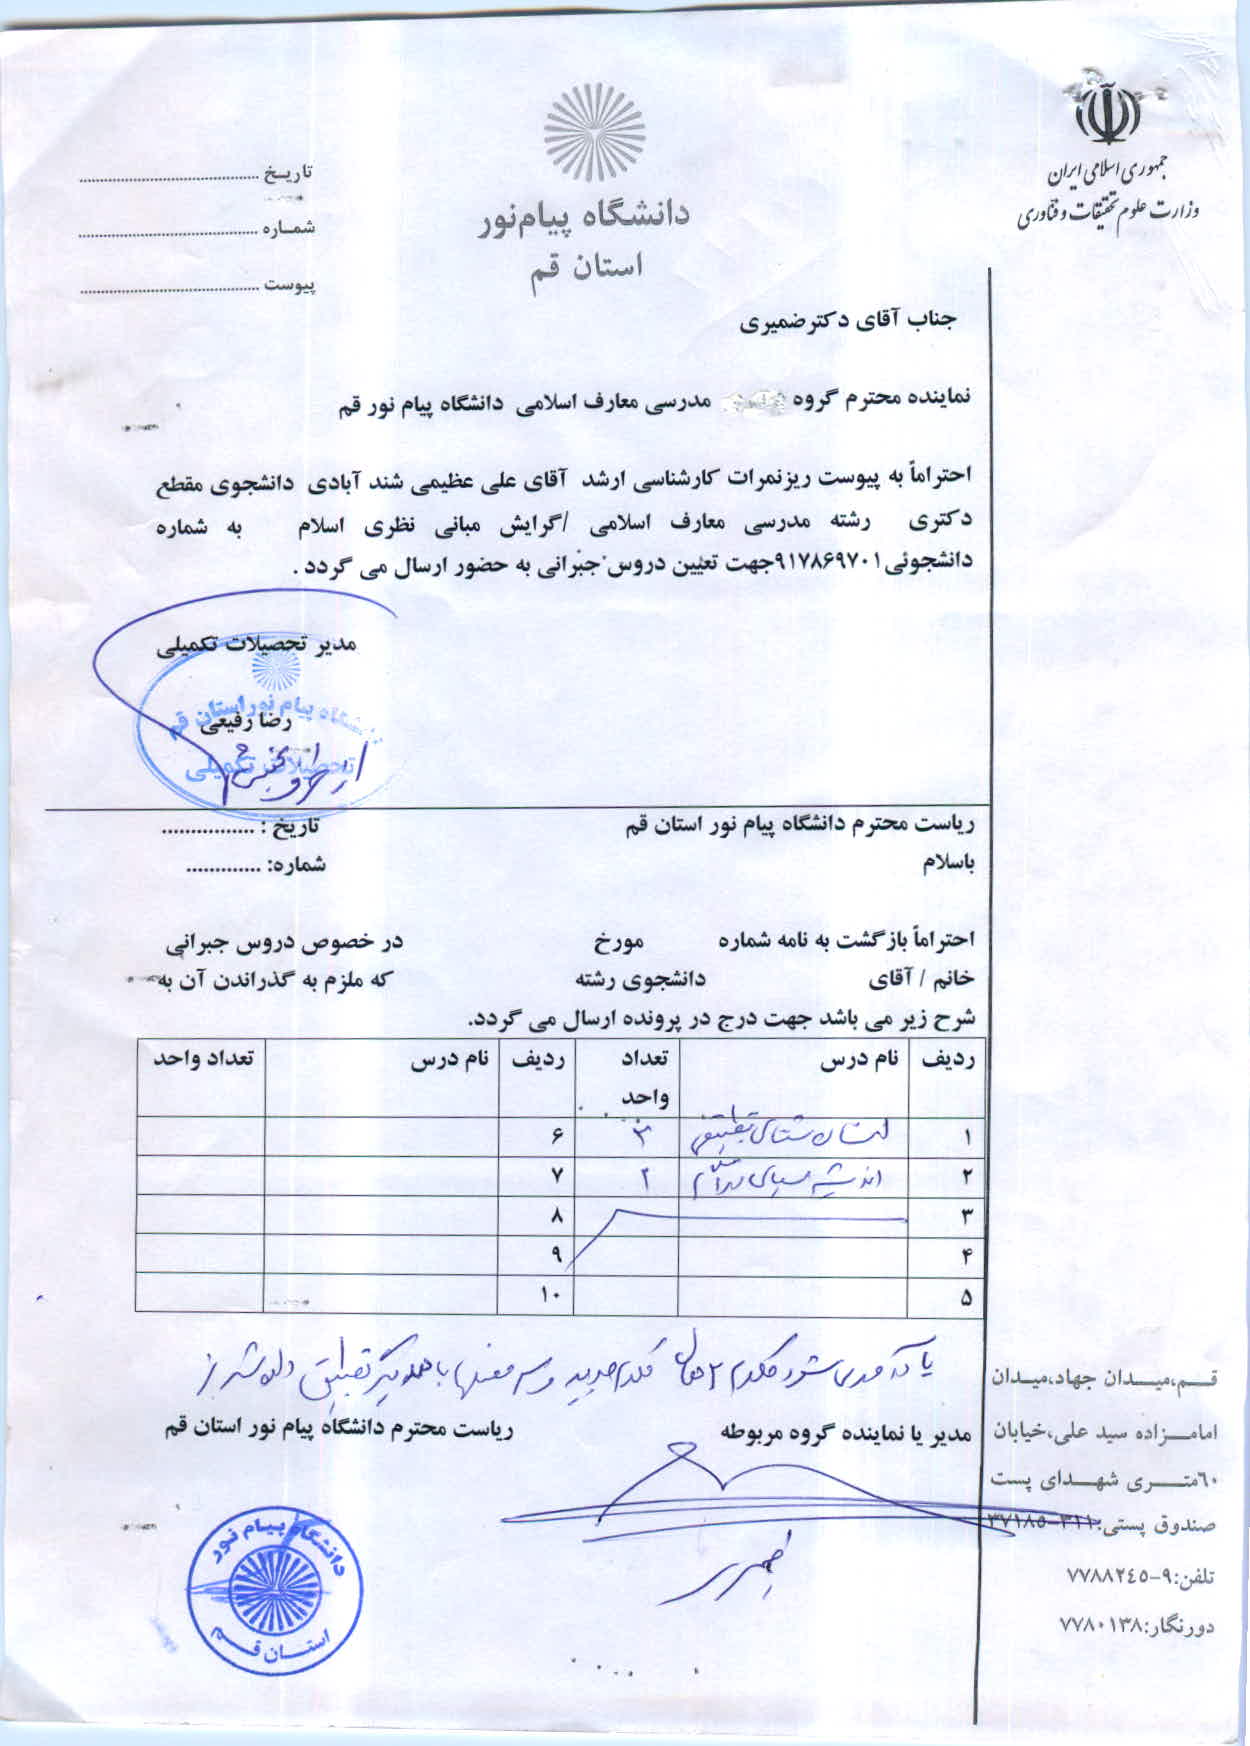 جمهوری اسلامی ایران
وزارت علوم تحقیقات و فناوری
دانشگاه پیام‌نور
استان قم
تاریـخ ............................................
شمـاره ............................................
پیوست ............................................
جناب آقای دکترضمیری
نماینده محترم گروه مدرسی معارف اسلامی دانشگاه پیام نور قم
احتراماً به پیوست ریزنمرات کارشناسی ارشد آقای علی عظیمی شند آبادی دانشجوی مقطع
دکتری رشته مدرسی معارف اسلامی /گرایش مبانی نظری اسلام به شماره
دانشجوئی۹۱۷۸۶۹۷۰۱جهت تعیین دروس جبرانی به حضور ارسال می گردد .
مدیر تحصیلات تکمیلی
دانشگاه پیام نور استان قم
رضا رفیعی
تحصیلات تکمیلی
از طرف
ریاست محترم دانشگاه پیام نور استان قم
تاریخ : ................
باسلام
شماره: .............
احتراماً بازگشت به نامه شماره مورخ در خصوص دروس جبرانی
خانم / آقای دانشجوی رشته که ملزم به گذراندن آن به
شرح زیر می باشد جهت درج در پرونده ارسال می گردد.
ردیف نام درس تعداد واحد ردیف نام درس تعداد واحد
۱ انسان شناسی تطبیقی ۲ ۶
۲ اندیشه سیاسی اسلام ۲ ۷
۳ ۸
۴ ۹
۵ ۱۰
مدیر یا نماینده گروه مربوطه
ریاست محترم دانشگاه پیام نور استان قم
ضمیری
دانشگاه پیام نور
استـان قـم
قــم،میــدان جهاد،میـدان
امامـزاده سید علی،خیابان
٦٠متــری شهــدای پست
صندوق پستی:٣١١-٣٧١٨٥
تلفن:٩-٧٧٨٨٢٤٥
دورنگار:٧٧٨٠١٣٨